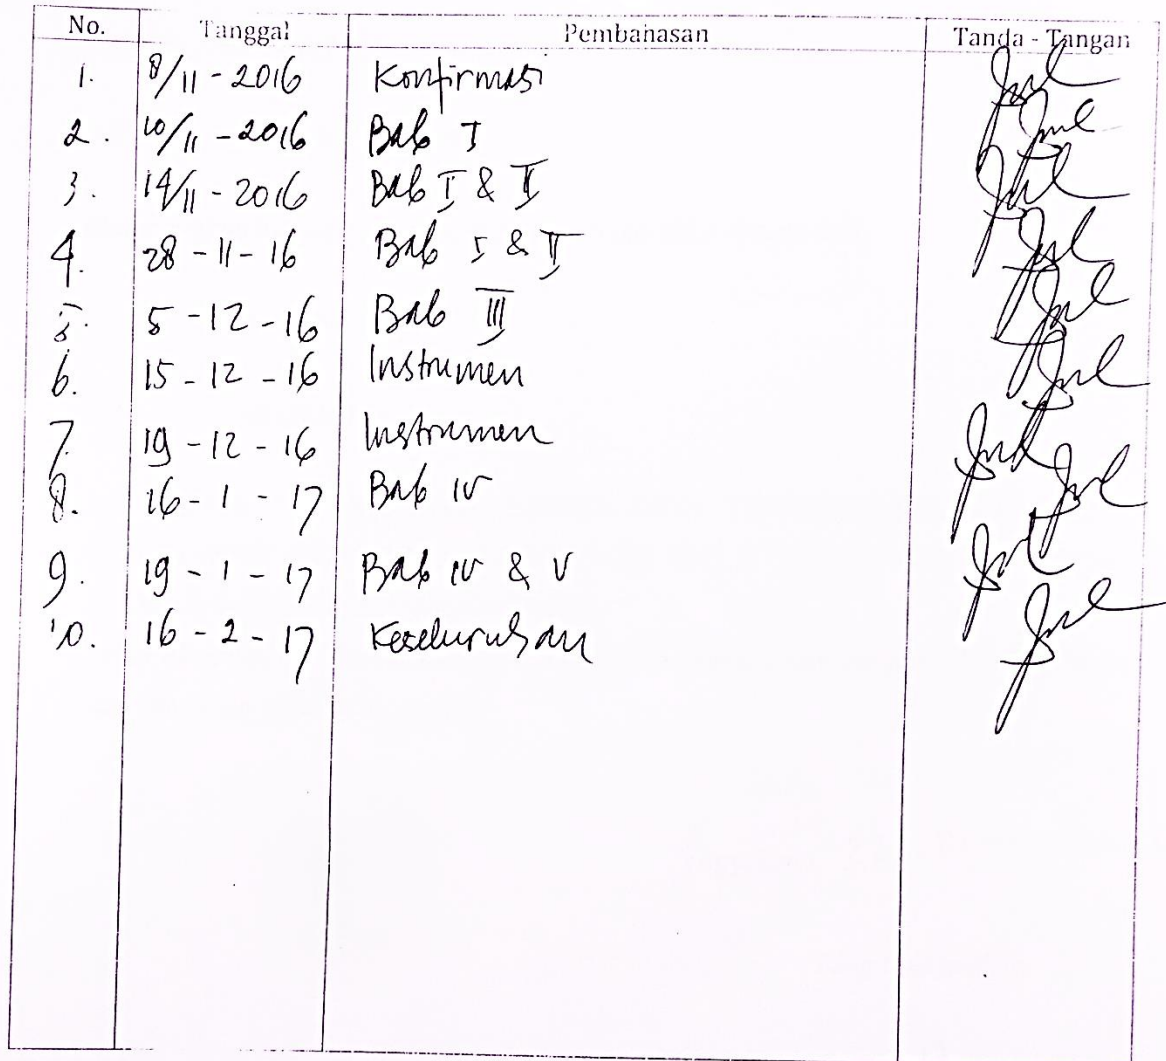 No. Tanggal Pembahasan Tanda - Tangan
1. 8/11 - 2016 Konfirmasi
2. 10/11 - 2016 Bab I
3. 14/11 - 2016 Bab I & II
4. 28 - 11 - 16 Bab I & II
5. 5 - 12 - 16 Bab III
6. 15 - 12 - 16 Instrumen
7. 19 - 12 - 16 Instrumen
8. 16 - 1 - 17 Bab IV
9. 19 - 1 - 17 Bab IV & V
10. 16 - 2 - 17 Keseluruhan